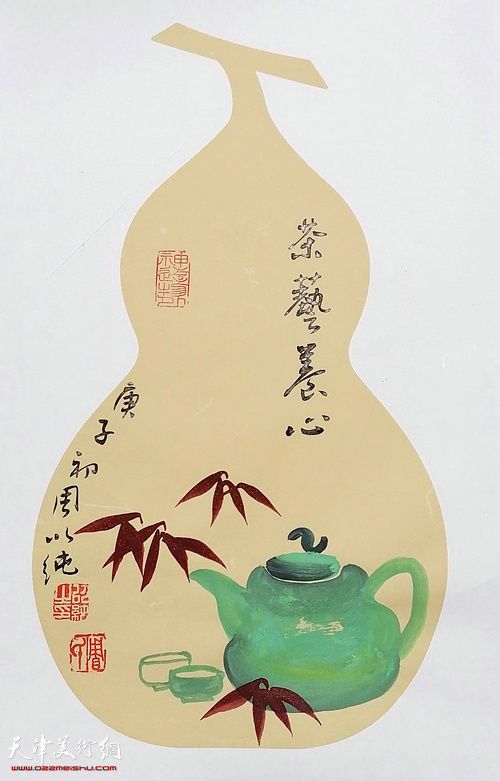 茶藝養心
庚子初周以純
天津美術網
www.022meishu.com